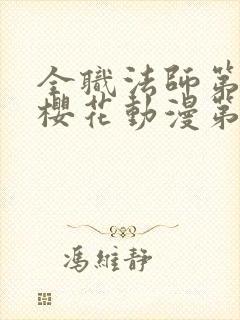 全職法師第
櫻花動漫第
馮維靜